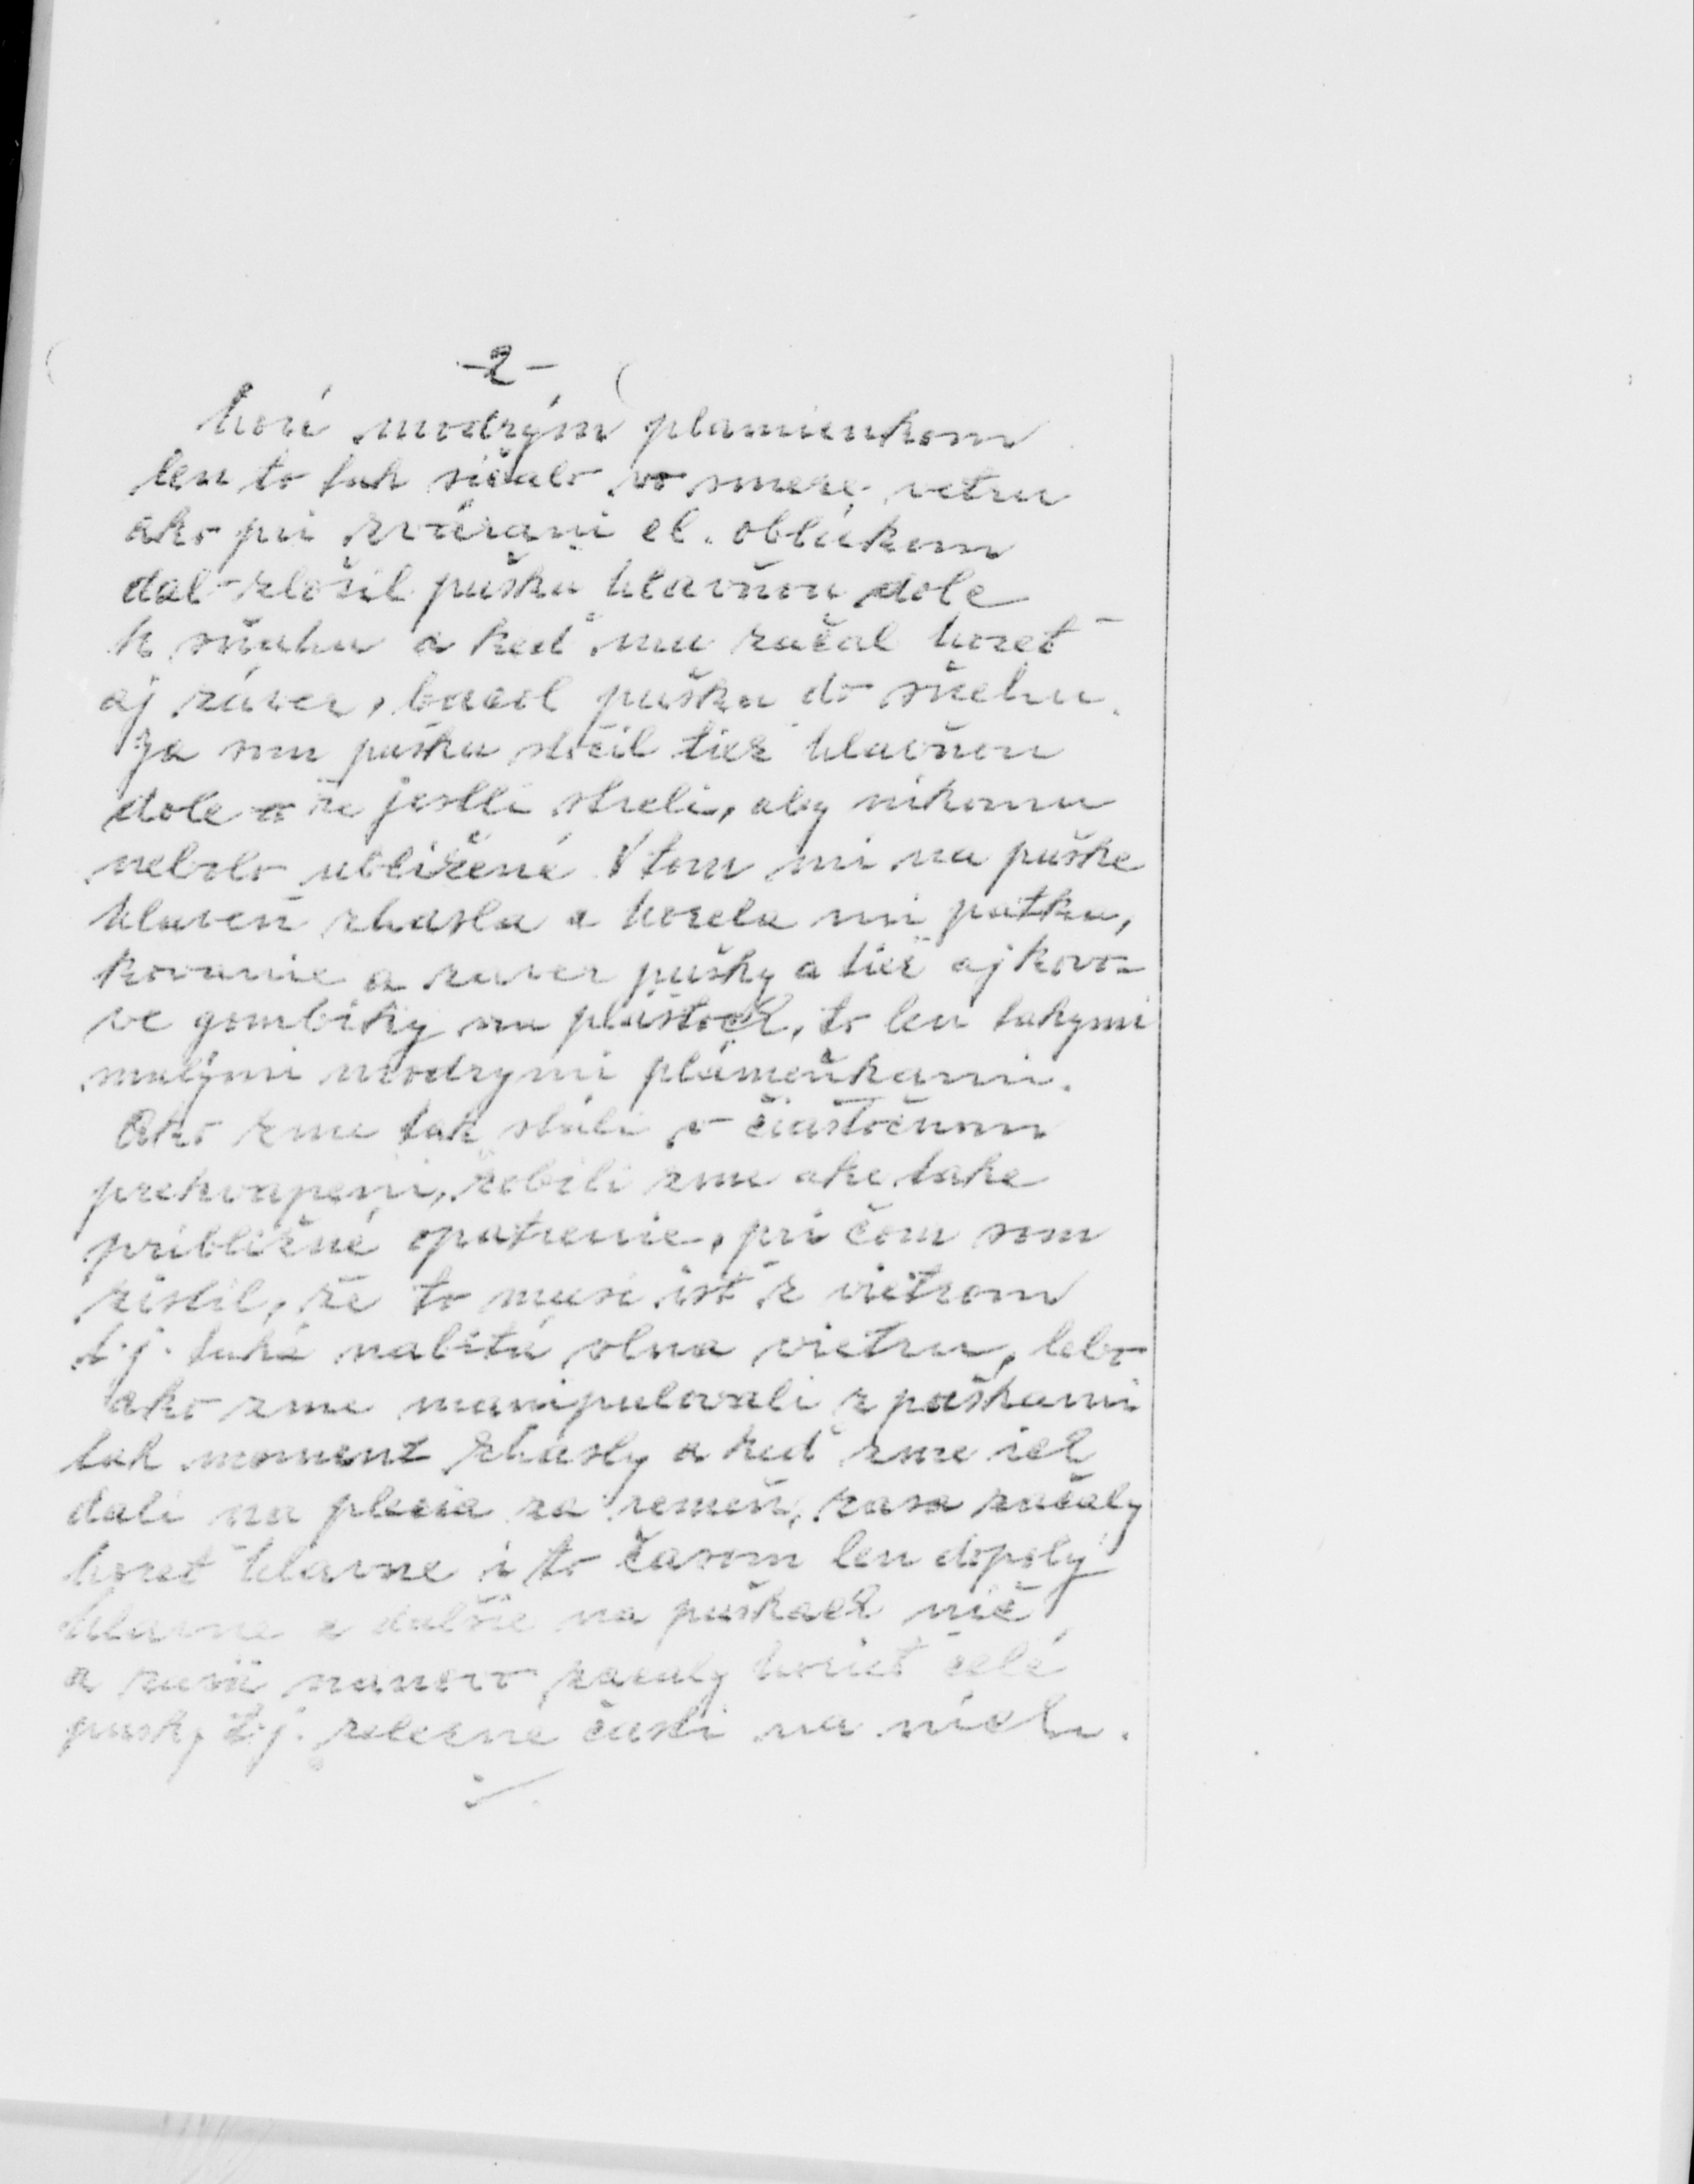 -2-
horí modrým plamienkom
len to tak sičalo vo smere vetru
ako pri zváraní el. oblúkom
dal zložil pušku hlavňou dole
k sňahu a keď mu začal horeť
aj záver, bacol pušku do sňehu.
Ja som pušku stočil tiež hlavňou
dole a že jestli streli, aby nikomu
nebolo ublížené. V tom mi na puške
hlaveň zhasla a horela mi patka,
kovanie a zaver pušky a tiež aj kovo-
ve gombíky na plášťoch, to len takymi
malými modrymi plámeňkami.
Ako zme tak stáli v čiastočnom
prekvapeni, robili zme ake take
približné opatrenie, pri čom som
zistil, že to musi ísť z vietrom
t.j. taká nabitá vlna vietru, lebo
ako zme manipulovali z puškami
tak moment zhasly a keď zme ich
dali na plecia za remeň, zasa začaly
horeť hlavne i to časom len dopoly
hlavne a dalšie na puškach nič
a zasa nanovo začaly horieť celé
pušky t.j. železné časti na nich.